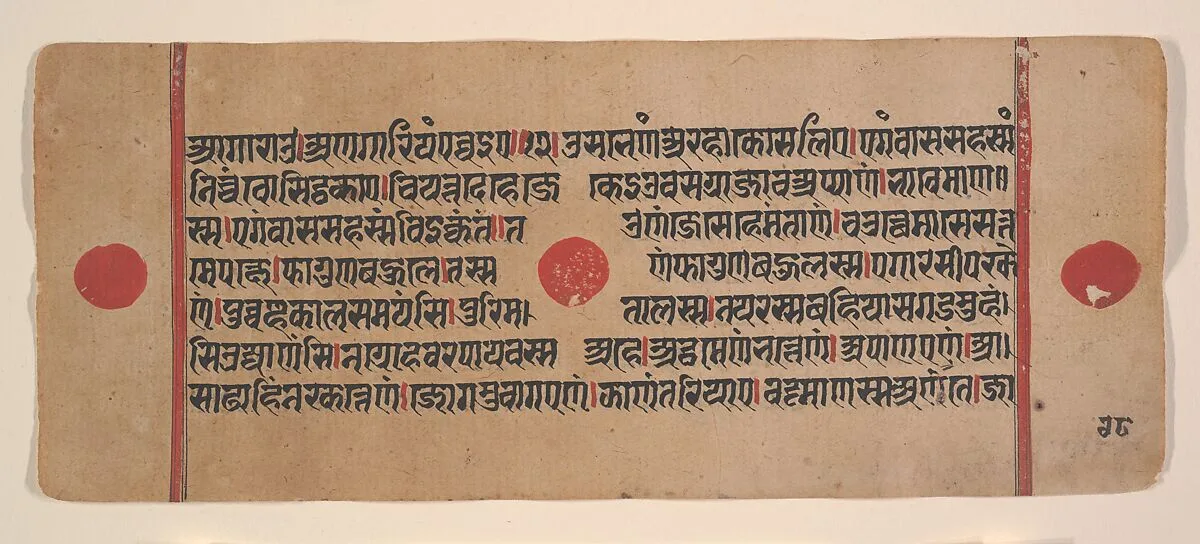 आगाराउ।अणगारियं पव्वइए॥ उसभेणं अरहा कोसलिए।एगं वाससहस्सं
निच्चं वोसिट्ठकाए।चियत्तदेहे जे केइ उवसग्गा जाव अप्पाणं।भावेमाण॥
स्स।एगं वाससहस्सं विइक्कंतं॥त उणं जे से हेमंताणं।चउत्थे मासे सत्त
मे पक्खे।फग्गुणबहुले।तस्स णं फग्गुणबहुलस्स।एगारसीपक्खे
णं।पुव्वण्हकालसमयंसि।पुरिम। तालस्स।नयरस्स बहिया सगडमुहं।
सि उज्जाणंसि।नग्गोहवरपायवस्स अहे।अट्ठमेणं भत्तेणं।अपाणएणं।आ।
साढाहिं नरकत्तेणं।जोगमुवागएणं।झाणंतरियाए।वट्टमाणस्स अणंते।जा
३८